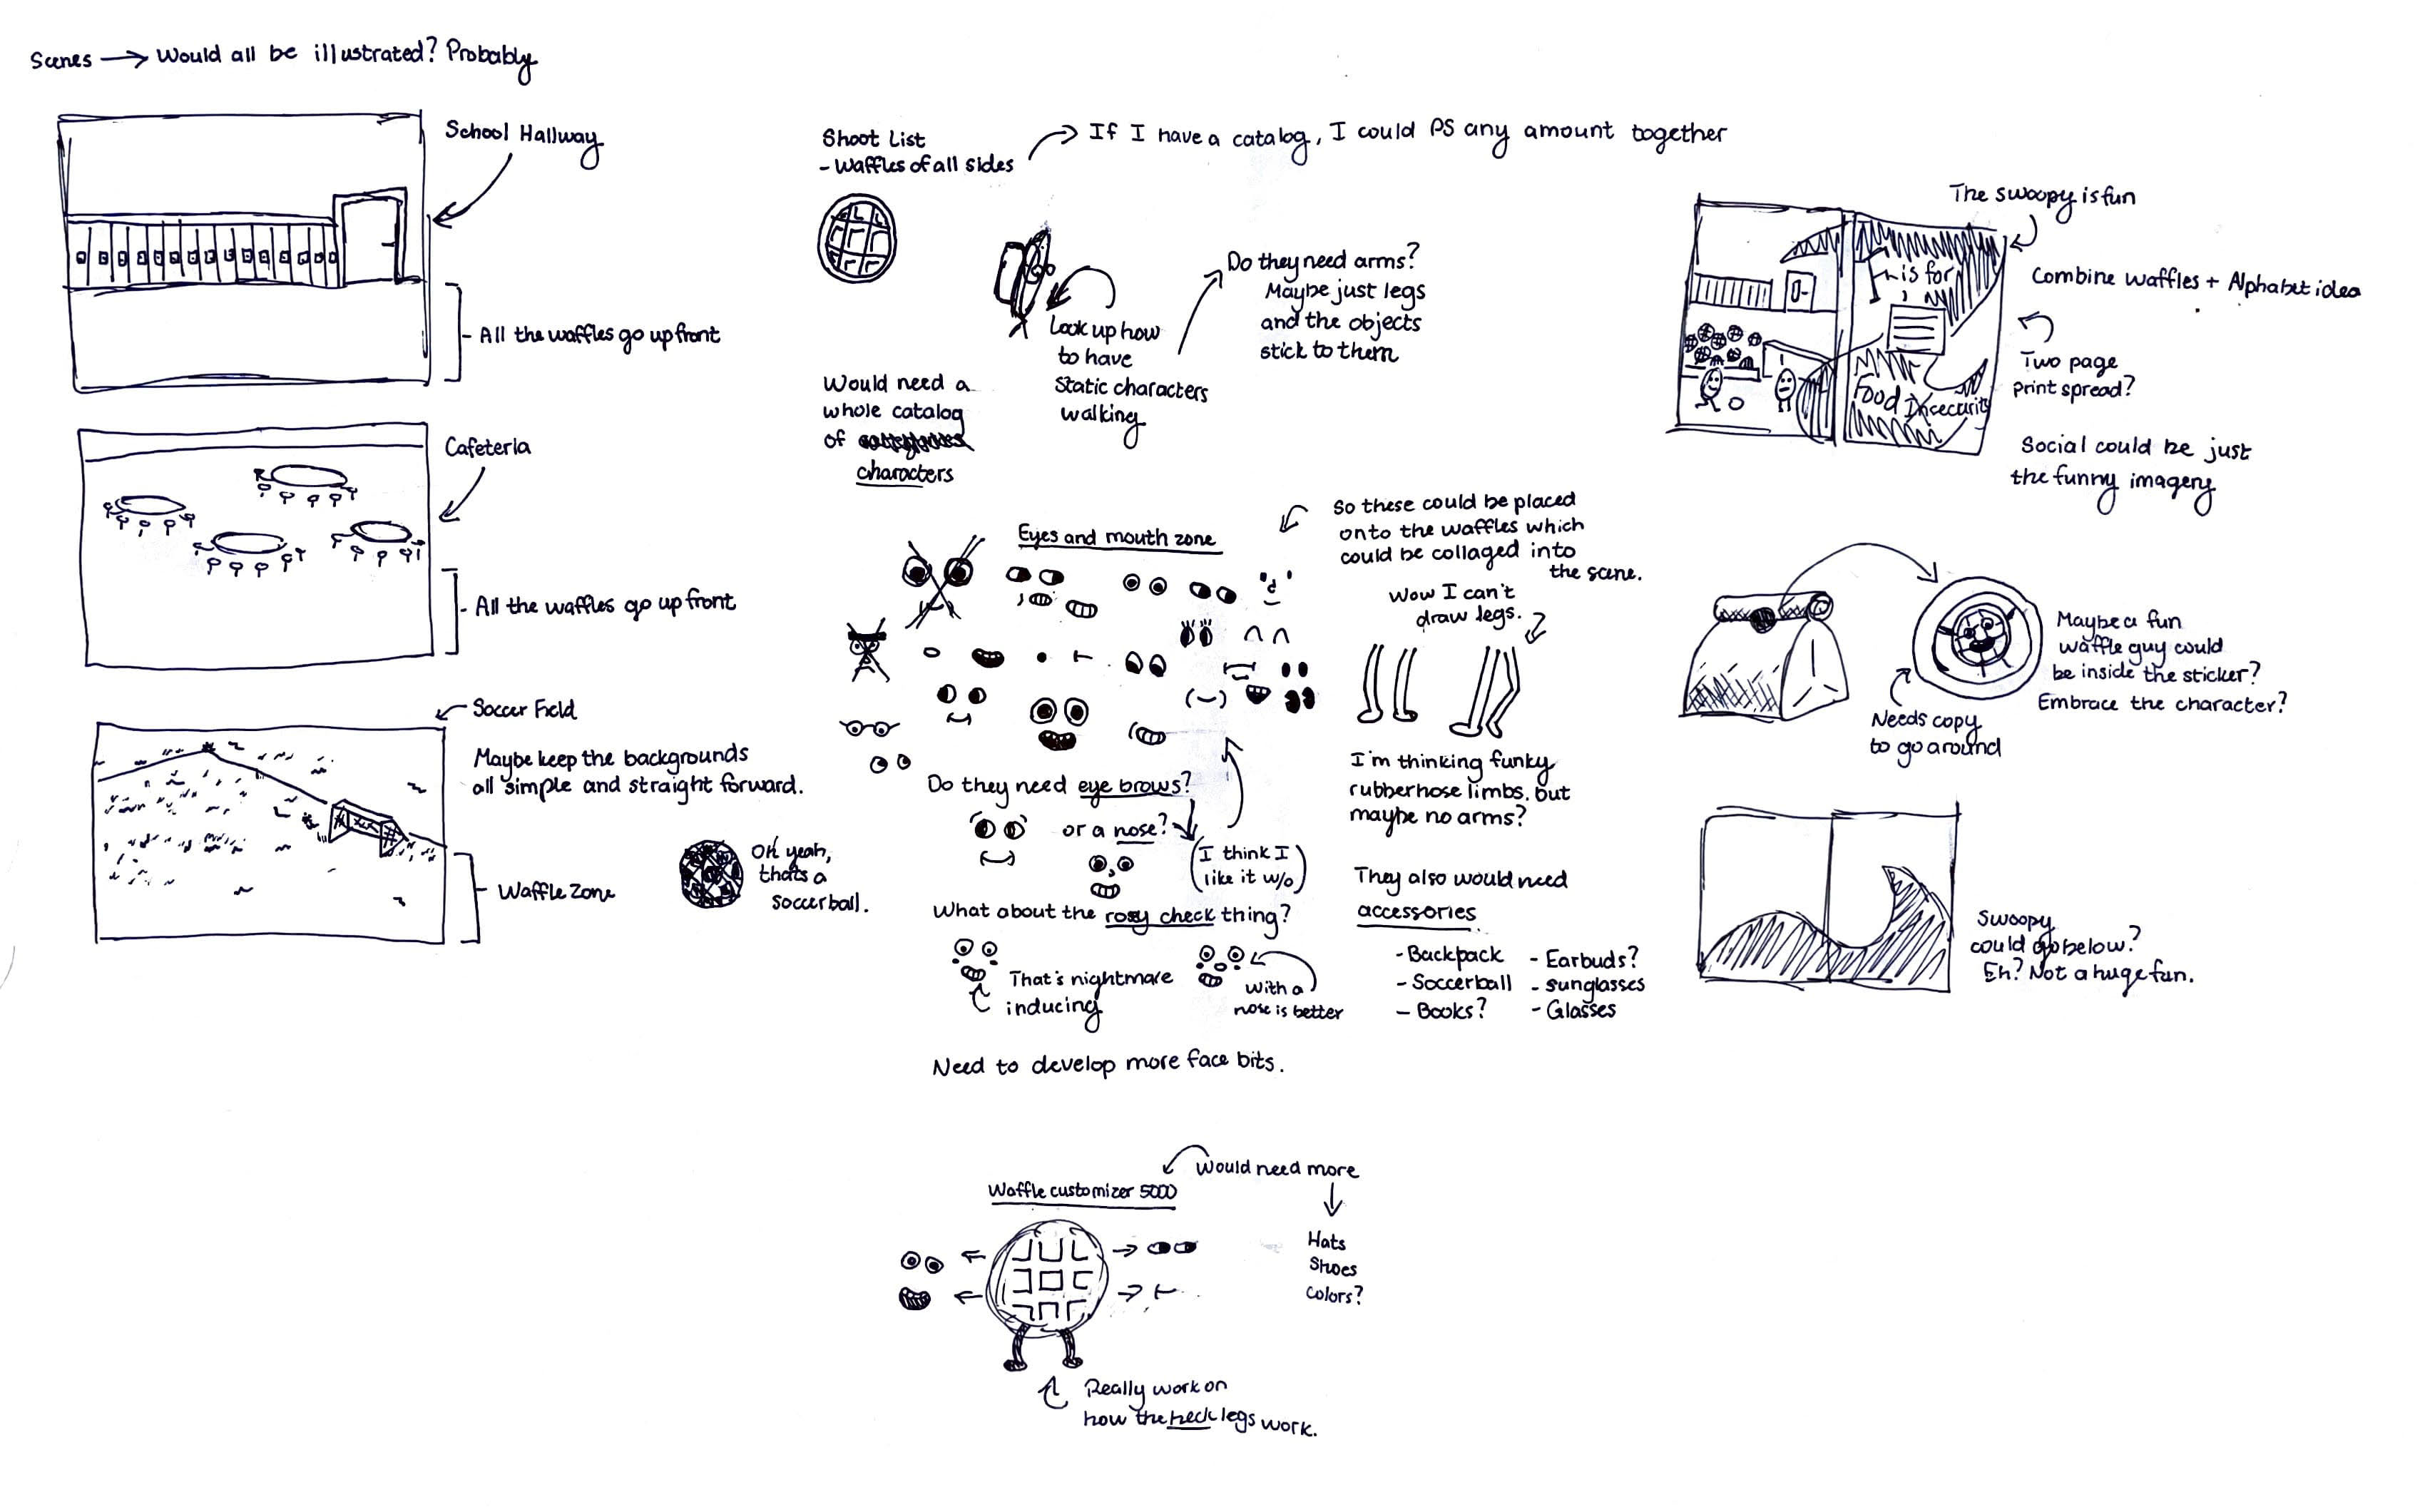 Scenes → Would all be illustrated? Probably
School Hallway
- All the waffles go up front
Cafeteria
- All the waffles go up front
Soccer Field
Maybe keep the backgrounds
all simple and straight forward.
- Waffle Zone
Oh yeah,
thats a
soccerball.
Shoot List
- Waffles of all sides
If I have a catalog, I could PS any amount together
Look up how
to have
static characters
walking
Do they need arms?
Maybe just legs
and the objects
stick to them
Would need a
whole catalog
of
characters
Eyes and mouth zone
So these could be placed
onto the waffles which
could be collaged into
the scene.
Wow I can't
draw legs.
I'm thinking funky
rubberhose limbs. but
maybe no arms?
Do they need eye brows?
or a nose?
(I think I
like it w/o)
What about the rosy check thing?
That's nightmare
inducing
with a
nose is better
Need to develop more face bits.
They also would need
accessories
- Backpack
- Soccerball
- Books?
- Earbuds?
- sunglasses
- Glasses
Waffle customizer 5000
Would need more
Hats
Shoes
Colors?
Really work on
how the heck legs work.
The swoopy is fun
is for
Food Insecurity
Combine waffles + Alphabet idea
Two page
print spread?
Social could be just
the funny imagery
Maybe a fun
waffle guy could
be inside the sticker?
Embrace the character?
Needs copy
to go around
Swoopy
could go below?
Eh? Not a huge fun.